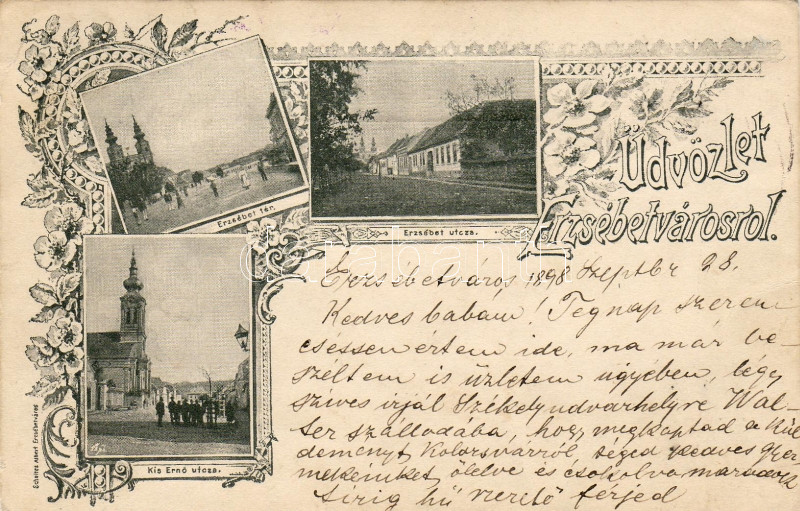 Üdvözlet
Erzsébetvárosról.
Erzsébet tér.
Erzsébet utcza.
Kis Ernő utcza.
Scheites Albert Erzsébetváros
Erzsébetváros 1898 Szeptbr 28.
Kedves babám! Tegnap szeren
csessen értem ide, ma már be-
széltem is üzletem ügyében, légy
szives irjál Székelyudvarhelyre Wal-
ser szállodába, hogy megkaptad a kül
deményt Kolozsvárról, séged kedves gyer
mekeinket ölelve és csokolva maradok
sirig hű szerető férjed